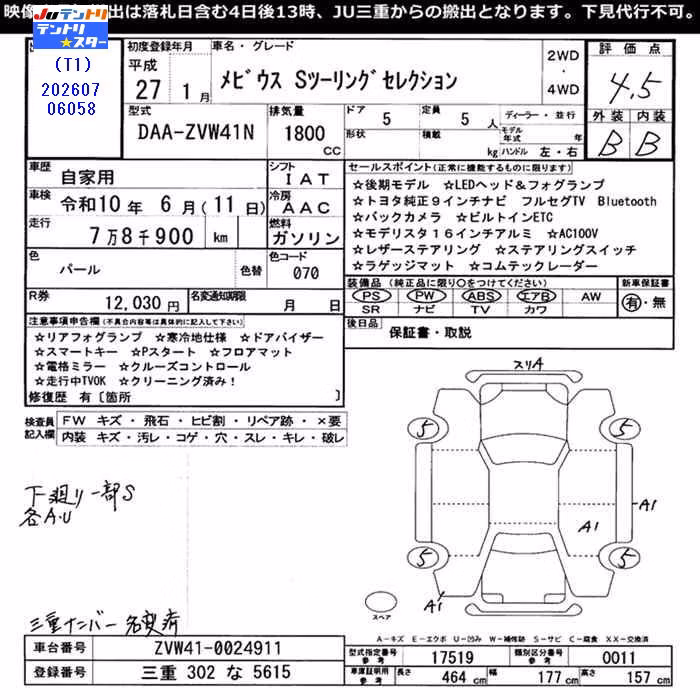 映像 出は落札日含む4日後13時、JU三重からの搬出となります。下見代行不可。
JUテントリ
テントリ★スター
(T1)
202607
06058
初度登録年月
平成
27 1月
車名・グレード
メビウス Sツーリングセレクション
2WD
・
4WD
評価点
4.5
外装 内装
B B
型式
DAA-ZVW41N
排気量
1800
CC
ドア
5
定員
5 人
形状
積載
kg
ディーラー・並行
モデル年式 年
ハンドル 左・右
車歴
自家用
シフト
IAT
車検
令和10年 6月(11日)
冷房
AAC
走行
7万8千900 km
燃料
ガソリン
色
パール
色替
色コード
070
R券
12,030円
名変通知期限
月 日
セールスポイント(正常に機能するものに限ります)
☆後期モデル ☆LEDヘッド&フォグランプ
☆トヨタ純正9インチナビ フルセグTV Bluetooth
☆バックカメラ ☆ビルトインETC
☆モデリスタ16インチアルミ ☆AC100V
☆レザーステアリング ☆ステアリングスイッチ
☆ラゲッジマット ☆コムテックレーダー
装備品(純正品に限り○をつけてください)
PS PW ABS エアB AW
SR ナビ TV カワ
新車保証書
有・無
後日品
保証書・取説
注意事項申告欄(不具合内容等は具体的に記入して下さい)
☆リアフォグランプ ☆寒冷地仕様 ☆ドアバイザー
☆スマートキー ☆Pスタート ☆フロアマット
☆電格ミラー ☆クルーズコントロール
☆走行中TVOK ☆クリーニング済み!
修復歴 有〔箇所 〕
検査員記入欄
FW キズ・飛石・ヒビ割・リペア跡・×要
内装 キズ・汚レ・コゲ・穴・スレ・キレ・破レ
下廻り一部S
各A.U
スリA
5
5
A1
A1
5
5
A1
スペア
三重ナンバー名変済
A−キズ E−エクボ U−凹み W−補修跡 S−サビ C−腐食 XX−交換済
車台番号
ZVW41-0024911
登録番号
三重 302 な 5615
型式指定番号
参考
17519
類別区分番号
参考
0011
車庫証明用
参考
長さ
464 cm
幅
177 cm
高さ
157 cm